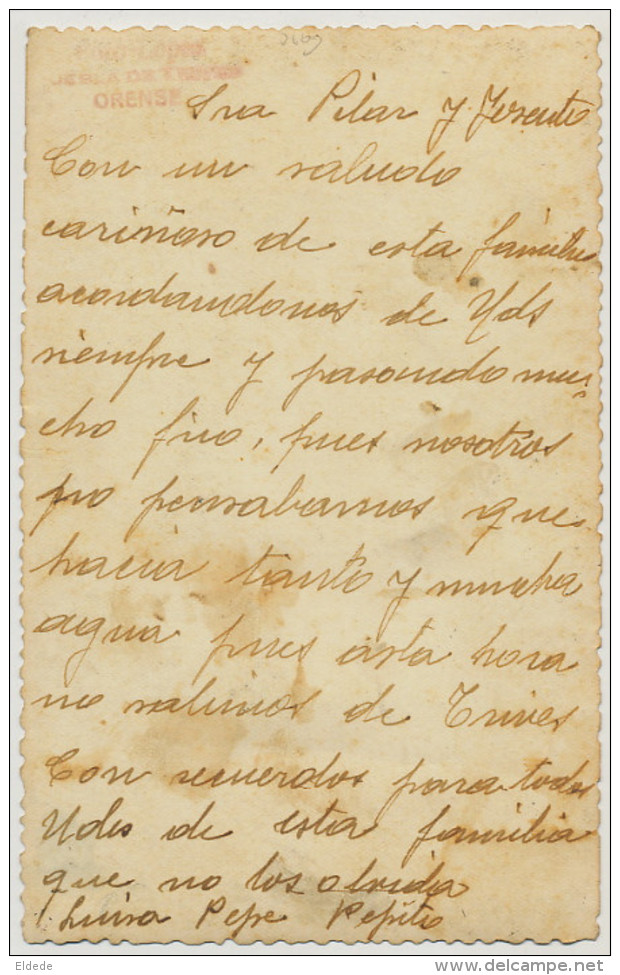 PUEBLA DE TRIVES
ORENSE
Sra Pilar y
Con un saludo
cariñoso de esta familia
acordandonos de Uds
siempre y pasando mu-
cho frio, pues nosotros
no pensabamos que
hacia tanto y mucha
agua pues asta hora
no salimos de Trives
Con recuerdos para todos
Udes de esta familia
que no los olvida
Luisa Pepe Pepito
Eldede
www.delcampe.net